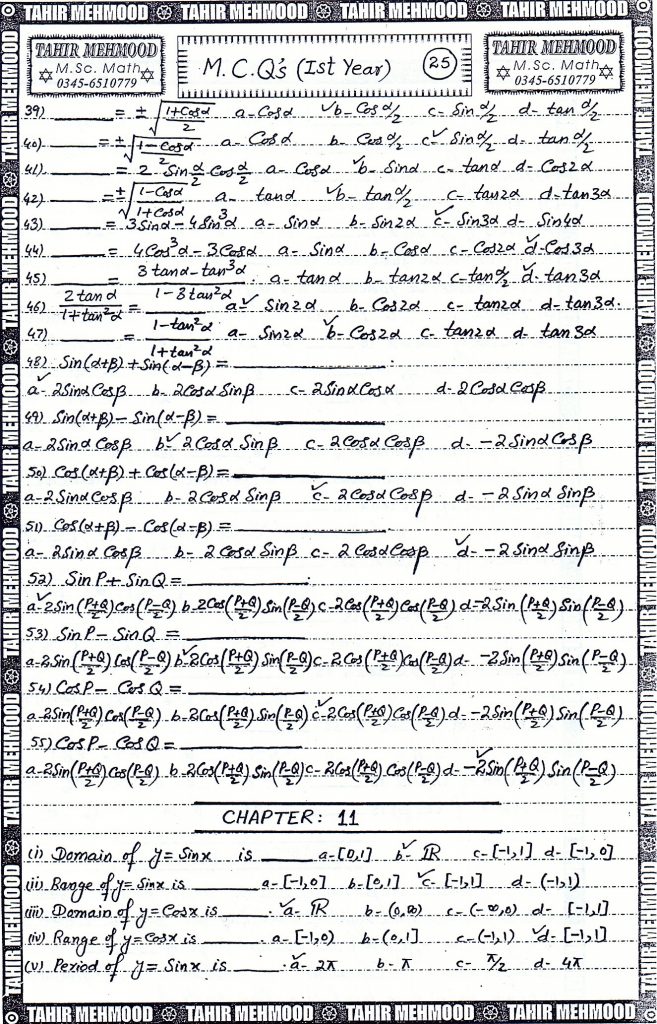 TAHIR MEHMOOD TAHIR MEHMOOD TAHIR MEHMOOD TAHIR MEHMOOD
TAHIR MEHMOOD
M.Sc. Math
0345-6510779
M.C.Q's (Ist Year)
25
TAHIR MEHMOOD
M.Sc. Math
0345-6510779
39) ______ = ± √((1+Cosα)/2) a- Cosα ✓b- Cos α/2 c- Sin α/2 d- tan α/2
40) ______ = ± √((1-Cosα)/2) a- Cosα b- Cos α/2 c✓ Sin α/2 d- tan α/2
41) ______ = 2 Sin α/2 Cos α/2 a- Cosα ✓b- Sinα c- tanα d- Cos2α
42) ______ = ± √((1-Cosα)/(1+Cosα)) a- tanα ✓b- tan α/2 c- tan2α d- tan3α
43) ______ = 3Sinα - 4Sin³α a- Sinα b- Sin2α ✓c- Sin3α d- Sin4α
44) ______ = 4Cos³α - 3Cosα a- Sinα b- Cosα c- Cos2α ✓d- Cos3α
45) ______ = (3tanα - tan³α)/(1-3tan²α) . a- tanα b- tan2α c- tan α/2 ✓d- tan3α
46) 2tanα/(1+tan²α) = ______ a✓ Sin2α b- Cos2α c- tan2α d- tan3α.
47) ______ = (1-tan²α)/(1+tan²α) a- Sin2α ✓b- Cos2α c- tan2α d- tan3α
48) Sin(α+β) + Sin(α-β) = ______ .
✓a- 2SinαCosβ b- 2CosαSinβ c- 2SinαCosα d- 2CosαCosβ
49) Sin(α+β) - Sin(α-β) = ______
a- 2SinαCosβ b✓ 2CosαSinβ c- 2CosαCosβ d- -2SinαCosβ
50) Cos(α+β) + Cos(α-β) = ______
a- 2SinαCosβ b- 2CosαSinβ ✓c- 2CosαCosβ d- -2SinαSinβ
51) Cos(α+β) - Cos(α-β) = ______ .
a- 2SinαCosβ b- 2CosαSinβ c- 2CosαCosβ ✓d- -2SinαSinβ
52) SinP + SinQ = ______ .
✓a- 2Sin((P+Q)/2)Cos((P-Q)/2) b- 2Cos((P+Q)/2)Sin((P-Q)/2) c- 2Cos((P+Q)/2)Cos((P-Q)/2) d- -2Sin((P+Q)/2)Sin((P-Q)/2)
53) SinP - SinQ = ______
a- 2Sin((P+Q)/2)Cos((P-Q)/2) ✓b- 2Cos((P+Q)/2)Sin((P-Q)/2) c- 2Cos((P+Q)/2)Cos((P-Q)/2) d- -2Sin((P+Q)/2)Sin((P-Q)/2)
54) CosP - CosQ = ______
a- 2Sin((P+Q)/2)Cos((P-Q)/2) b- 2Cos((P+Q)/2)Sin((P-Q)/2) ✓c- 2Cos((P+Q)/2)Cos((P-Q)/2) d- -2Sin((P+Q)/2)Sin((P-Q)/2)
55) CosP - CosQ = ______
a- 2Sin((P+Q)/2)Cos((P-Q)/2) b- 2Cos((P+Q)/2)Sin((P-Q)/2) c- 2Cos((P+Q)/2)Cos((P-Q)/2) ✓d- -2Sin((P+Q)/2)Sin((P-Q)/2)
CHAPTER: 11
(i) Domain of y = Sinx is ______ a- [0,1] b✓ ℝ c- [-1,1] d- [-1,0]
(ii) Range of y = Sinx is ______ a- [-1,0] b- [0,1] ✓c- [-1,1] d- (-1,1)
(iii) Domain of y = Cosx is ______ . ✓a- ℝ b- (0,∞) c- (-∞,0) d- [-1,1]
(iv) Range of y = Cosx is ______ . a- [-1,0) b- (0,1] c- (-1,1) ✓d- [-1,1]
(v) Period of y = Sinx is ______ . ✓a- 2π b- π c- π/2 d- 4π
TAHIR MEHMOOD TAHIR MEHMOOD TAHIR MEHMOOD TAHIR MEHMOOD